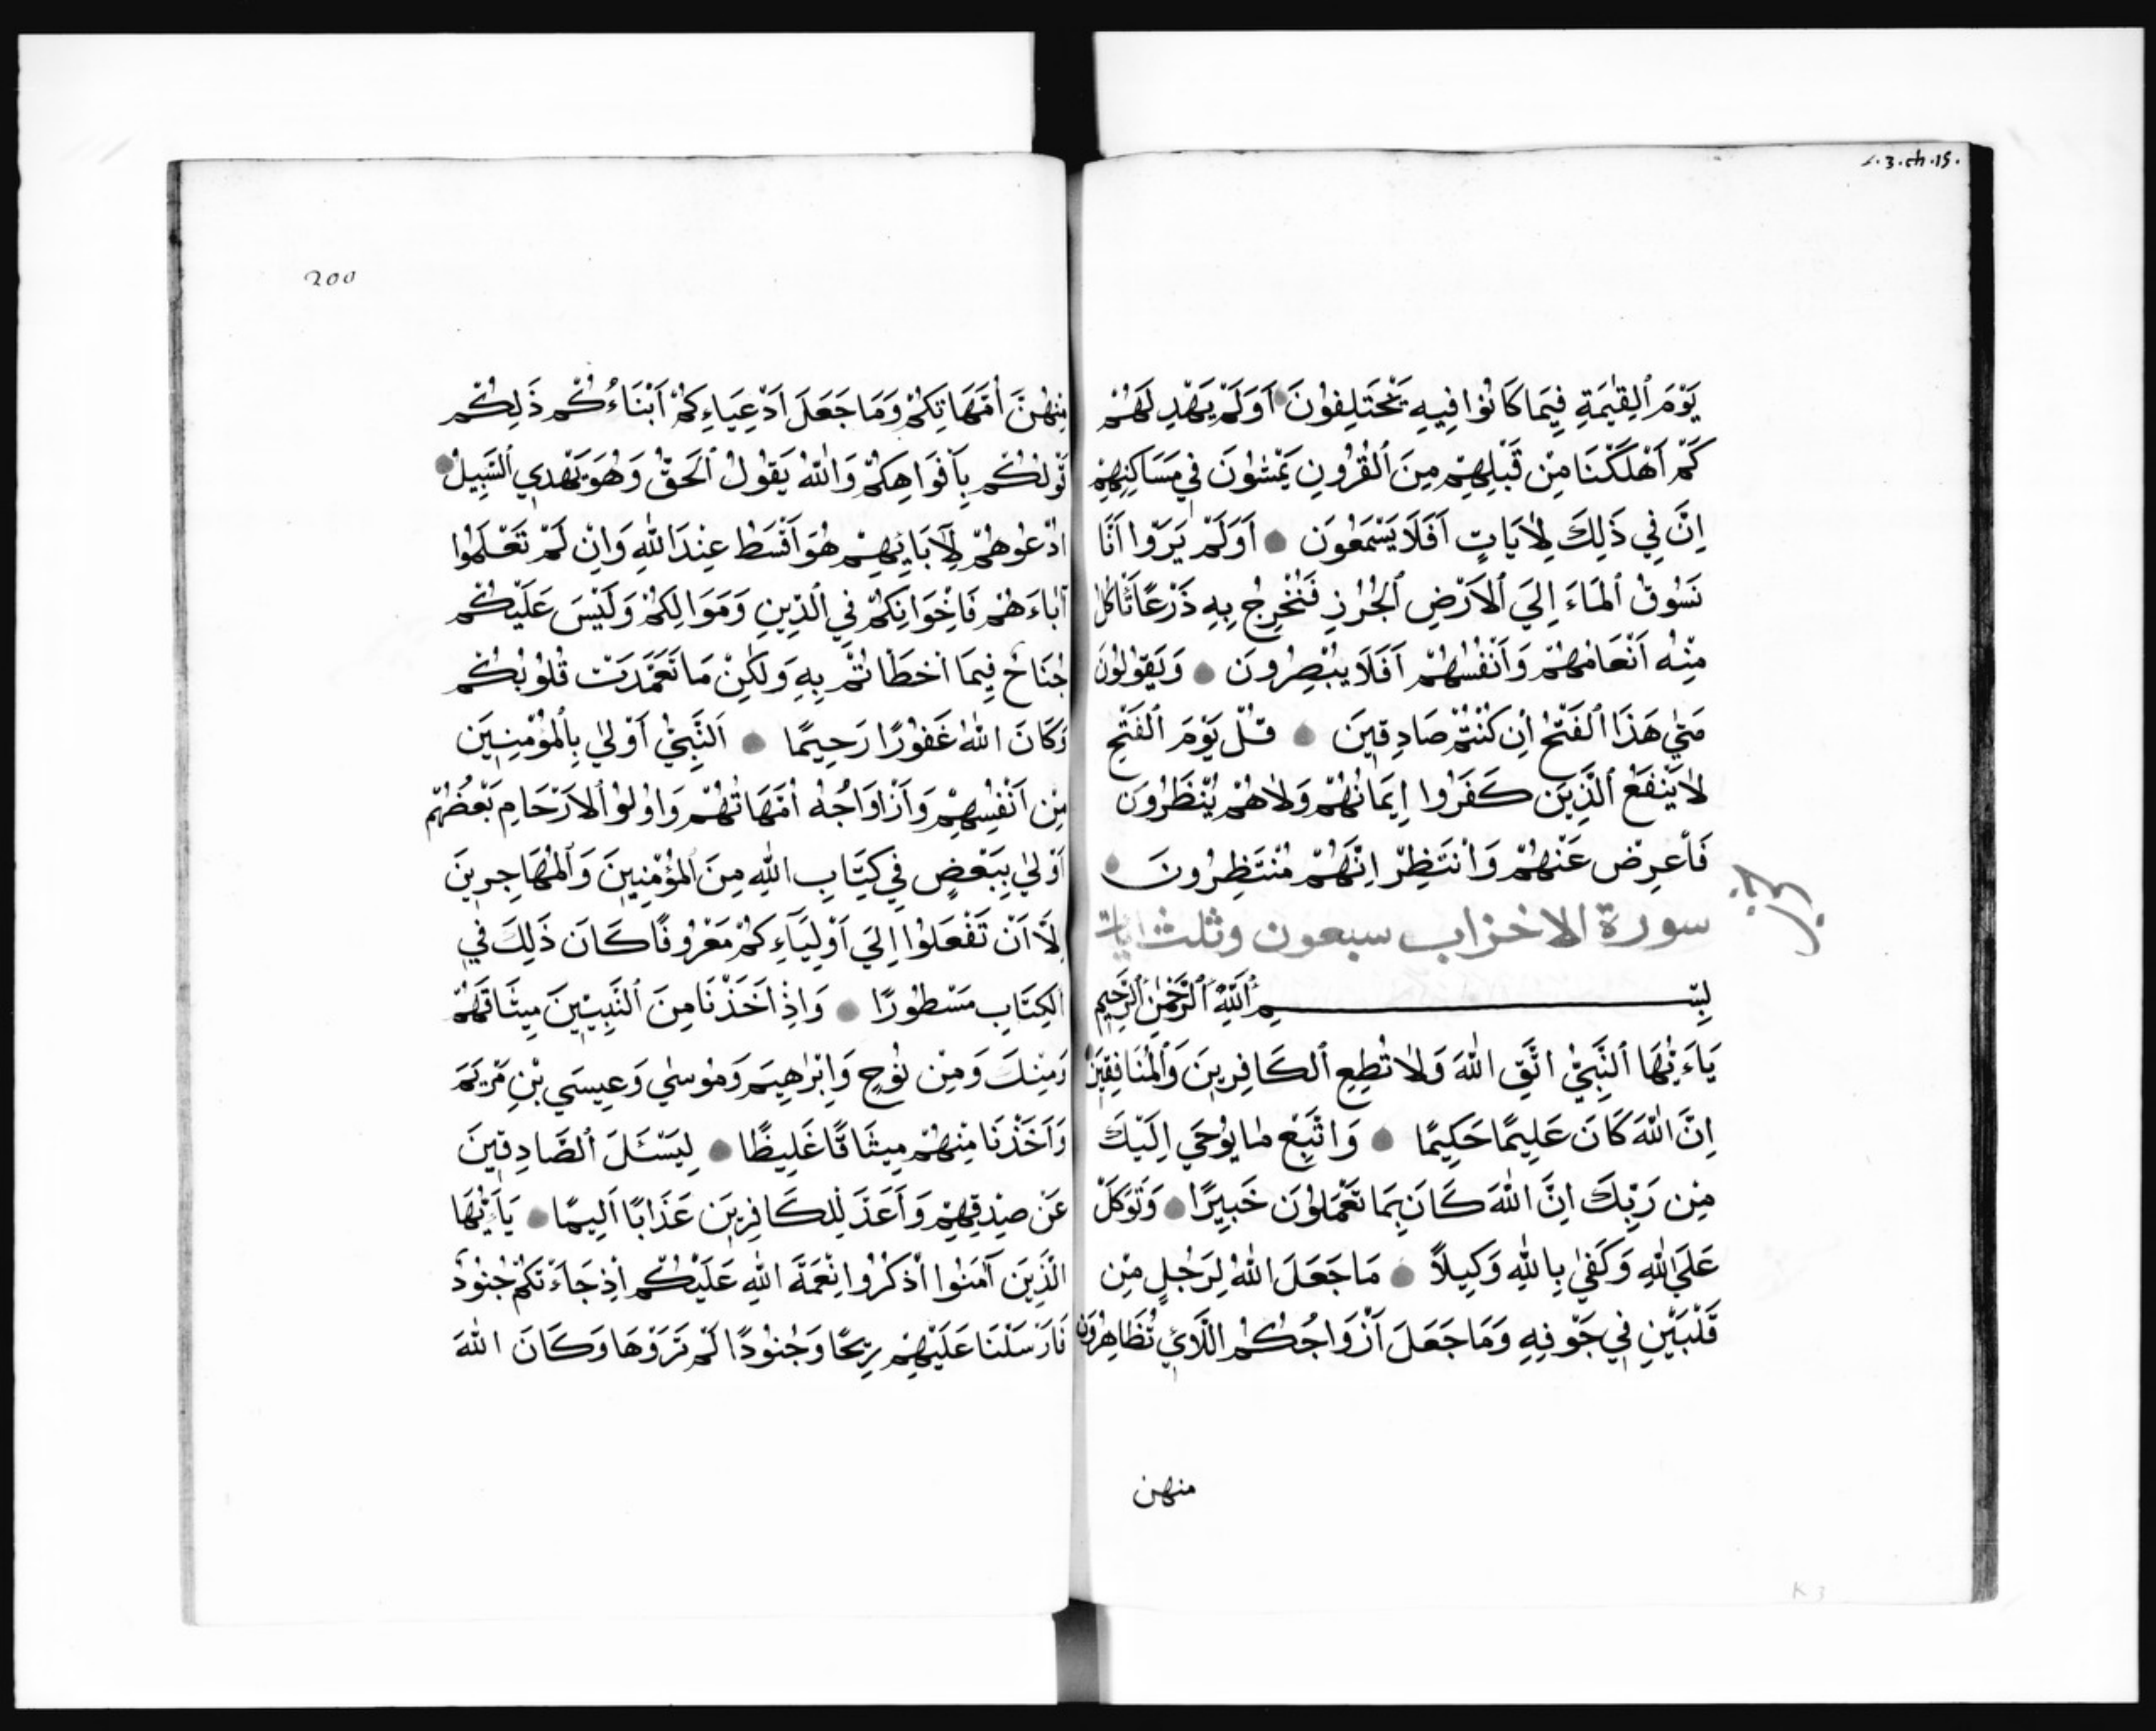 s.3.ch.15.
يَوْمَ ٱلْقِيٰمَةِ فِيمَا كَانُوا فِيهِ يَخْتَلِفُونَ اَوَلَمْ يَهْدِ لَهُمْ
كَمْ اَهْلَكْنَا مِنْ قَبْلِهِمْ مِنَ ٱلْقُرُونِ يَمْشُونَ فِي مَسَاكِنِهِمْ
اِنَّ فِي ذَلِكَ لَاٰيَاتٍ اَفَلَا يَسْمَعُونَ اَوَلَمْ يَرَوْا اَنَّا
نَسُوقُ ٱلْمَاءَ اِلَي ٱلْاَرْضِ ٱلْجُرُزِ فَنُخْرِجُ بِهِ زَرْعًا تَاْكُلُ
مِنْهُ اَنْعَامُهُمْ وَاَنْفُسُهُمْ اَفَلَا يُبْصِرُونَ وَيَقُولُونَ
مَتٰي هَذَا ٱلْفَتْحُ اِنْ كُنْتُمْ صَادِقِينَ قُلْ يَوْمَ ٱلْفَتْحِ
لَا يَنْفَعُ ٱلَّذِينَ كَفَرُوا اِيمَانُهُمْ وَلَا هُمْ يُنْظَرُونَ
فَاَعْرِضْ عَنْهُمْ وَاَنْتَظِرْ اِنَّهُمْ مُنْتَظِرُونَ
سورة الاحزاب سبعون وثلث ايات
بِسْمِ ٱللّٰهِ ٱلرَّحْمٰنِ ٱلرَّحِيمِ
يَاءَيُّهَا ٱلنَّبِيُّ اتَّقِ اللّٰهَ وَلَا تُطِعِ ٱلْكَافِرِينَ وَٱلْمُنَافِقِينَ
اِنَّ اللّٰهَ كَانَ عَلِيمًا حَكِيمًا وَاتَّبِعْ مَا يُوحَي اِلَيْكَ
مِنْ رَبِّكَ اِنَّ اللّٰهَ كَانَ بِمَا تَعْمَلُونَ خَبِيرًا وَتَوَكَّلْ
عَلَي اللّٰهِ وَكَفٰي بِاللّٰهِ وَكِيلًا مَا جَعَلَ اللّٰهُ لِرَجُلٍ مِنْ
قَلْبَيْنِ فِي جَوْفِهِ وَمَا جَعَلَ اَزْوَاجُكُمُ اللَّائِي تُظَاهِرُونَ
منهن
200
مِنْهُنَّ اُمَّهَاتِكُمْ وَمَا جَعَلَ اَدْعِيَاءِكُمْ اَبْنَاءُكُمْ ذَلِكُمْ
قَوْلُكُمْ بِاَفْوَاهِكُمْ وَاللّٰهُ يَقُولُ ٱلْحَقَّ وَهُوَ يَهْدِي ٱلسَّبِيلَ
ادْعُوهُمْ لِاٰبَايِهِمْ هُوَ اَقْسَطُ عِنْدَ اللّٰهِ وَاِنْ لَمْ تَعْلَمُوا
اٰبَاءَهُمْ فَاِخْوَانِكُمْ فِي ٱلدِّينِ وَمَوَالِكُمْ وَلَيْسَ عَلَيْكُمْ
جُنَاحٌ فِيمَا اَخْطَاْتُمْ بِهِ وَلٰكِنْ مَا تَعَمَّدَتْ قُلُوبُكُمْ
وَكَانَ اللّٰهُ غَفُورًا رَحِيمًا اَلنَّبِيُّ اَوْلٰي بِٱلْمُؤْمِنِينَ
مِنْ اَنْفُسِهِمْ وَاَزْوَاجُهُ اُمَّهَاتُهُمْ وَاُولُوا ٱلْاَرْحَامِ بَعْضُهُمْ
اَوْلٰي بِبَعْضٍ فِي كِتَابِ اللّٰهِ مِنَ ٱلْمُؤْمِنِينَ وَٱلْمُهَاجِرِينَ
اِلَّا اَنْ تَفْعَلُوا اِلَي اَوْلِيَاءِكُمْ مَعْرُوفًا كَانَ ذَلِكَ فِي
ٱلْكِتَابِ مَسْطُورًا وَاِذْ اَخَذْنَا مِنَ ٱلنَّبِيِّينَ مِيثَاقَهُمْ
وَمِنْكَ وَمِنْ نُوحٍ وَاِبْرٰهِيمَ وَمُوسٰي وَعِيسَي بْنِ مَرْيَمَ
وَاَخَذْنَا مِنْهُمْ مِيثَاقًا غَلِيظًا لِيَسْئَلَ ٱلصَّادِقِينَ
عَنْ صِدْقِهِمْ وَاَعَدَّ لِلْكَافِرِينَ عَذَابًا اَلِيمًا يَاَيُّهَا
الَّذِينَ آمَنُوا اُذْكُرُوا نِعْمَةَ اللّٰهِ عَلَيْكُمْ اِذْ جَاءَتْكُمْ جُنُودٌ
فَاَرْسَلْنَا عَلَيْهِمْ رِيحًا وَجُنُودًا لَمْ تَرَوْهَا وَكَانَ اللّٰهَ